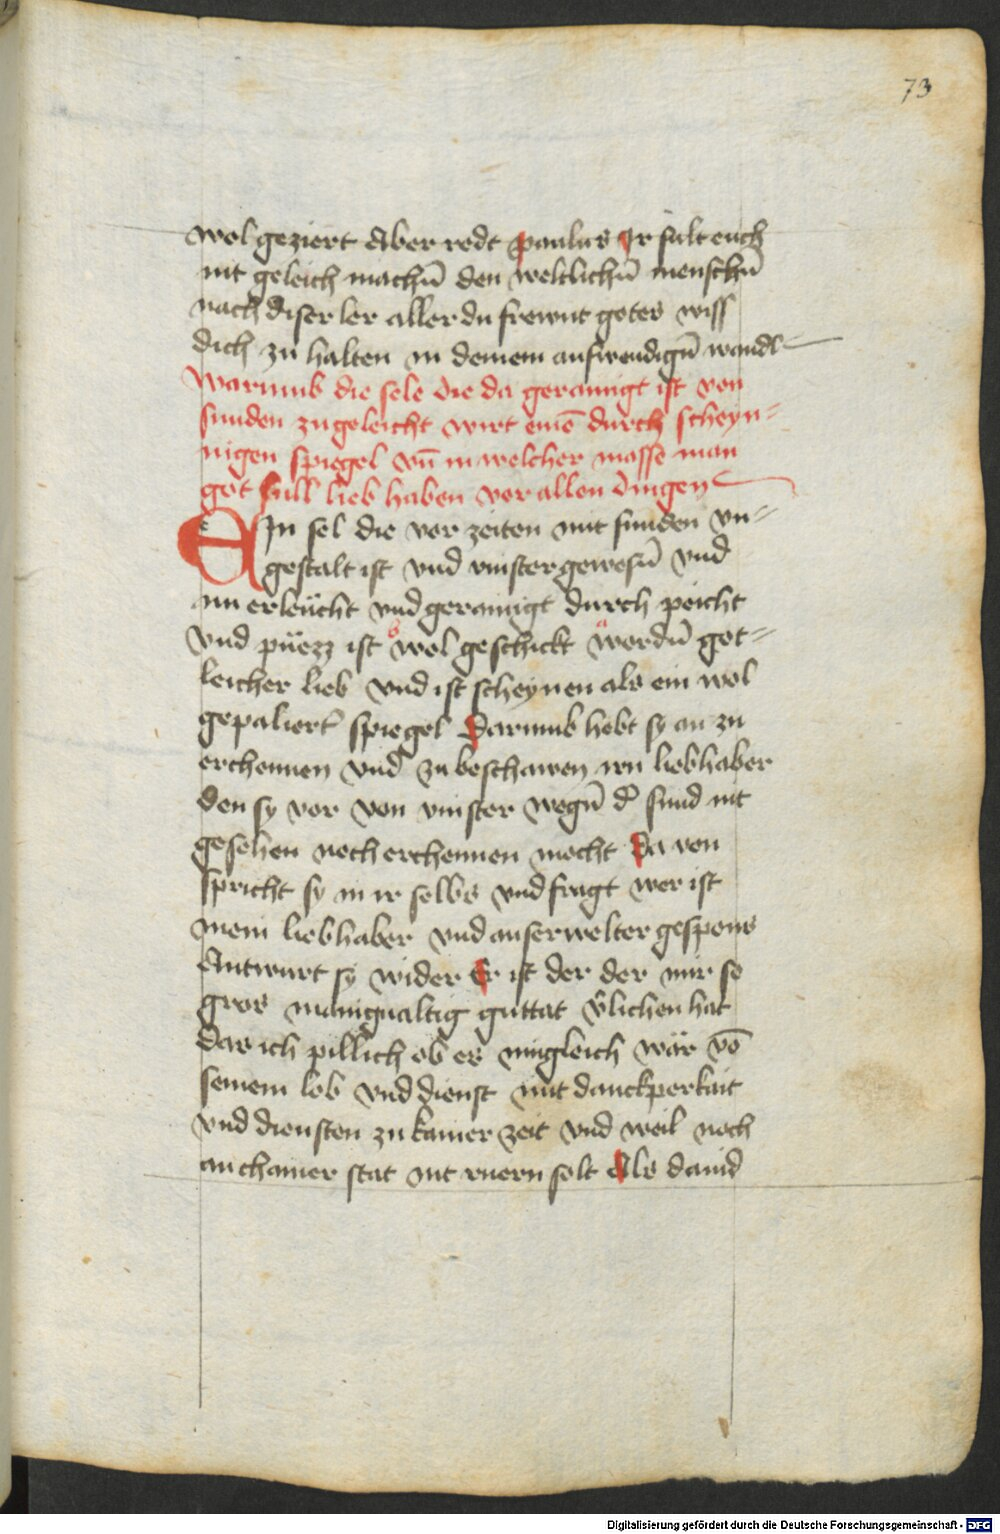 73
wol geziert Aber redt paulus Ir sult euch
nit geleich machn̄ den weltlichn̄ menschn̄
nach diser ler aller du frewnt gotes wiss
dich zu halten in deinem auswendign̄ wandl
Warumb die sele die da gerainigt ist von
sunden zugeleicht wirt einē durch scheyn-
nigen spiegel vn̄ in welcher masse man
got sull lieb haben vor allen dingen
EIn sel die vor zeiten mit sunden vn-
gestalt ist vnd vinster gewesn̄ vnd
nu erleücht vnd gerainigt durch peicht
vnd püezz ist wol geschickt wordn̄ got-
leicher lieb vnd ist scheynen als ein wol
gepaliert̄ spiegel Darumb hebt sy an zu
erchennen vnd zu beschawen irn liebhaber
den sy vor von vinster wegn̄ d̄ sund nit
gesehen noch erchennen mocht Da von
spricht sy in ir selbs vnd fragt wer ist
mein liebhaber vnd auserwelter gespons
Antwurt sy wider Er ist der der mir so
gros manigualtig guttat v̄lichen hat
Das ich pillich ob es mugleich wär vō
seinem lob vnd dienst mit danckperkait
vnd diensten zu kainer zeit vnd weil noch
an chainer stat nit ruern solt Als dauid
Digitalisierung gefördert durch die Deutsche Forschungsgemeinschaft - DFG